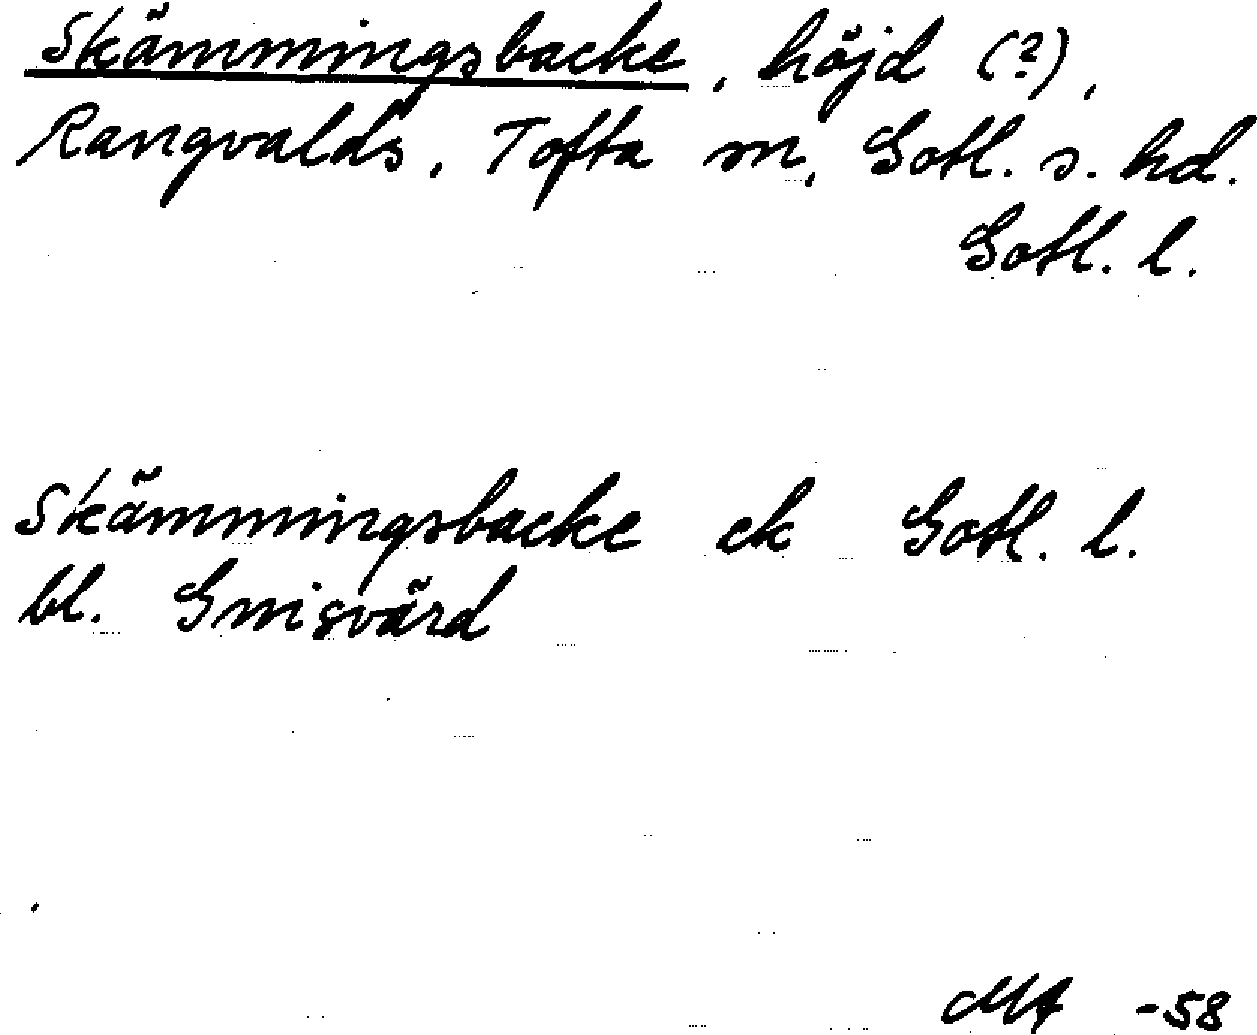 Skämmingsbacke, höjd (?),
Rangvalds, Tofta sn, Gotl. s. hd.
Gotl. l.
Skämmingsbacke ek Gotl. l.
bl. Gnisvärd
-58